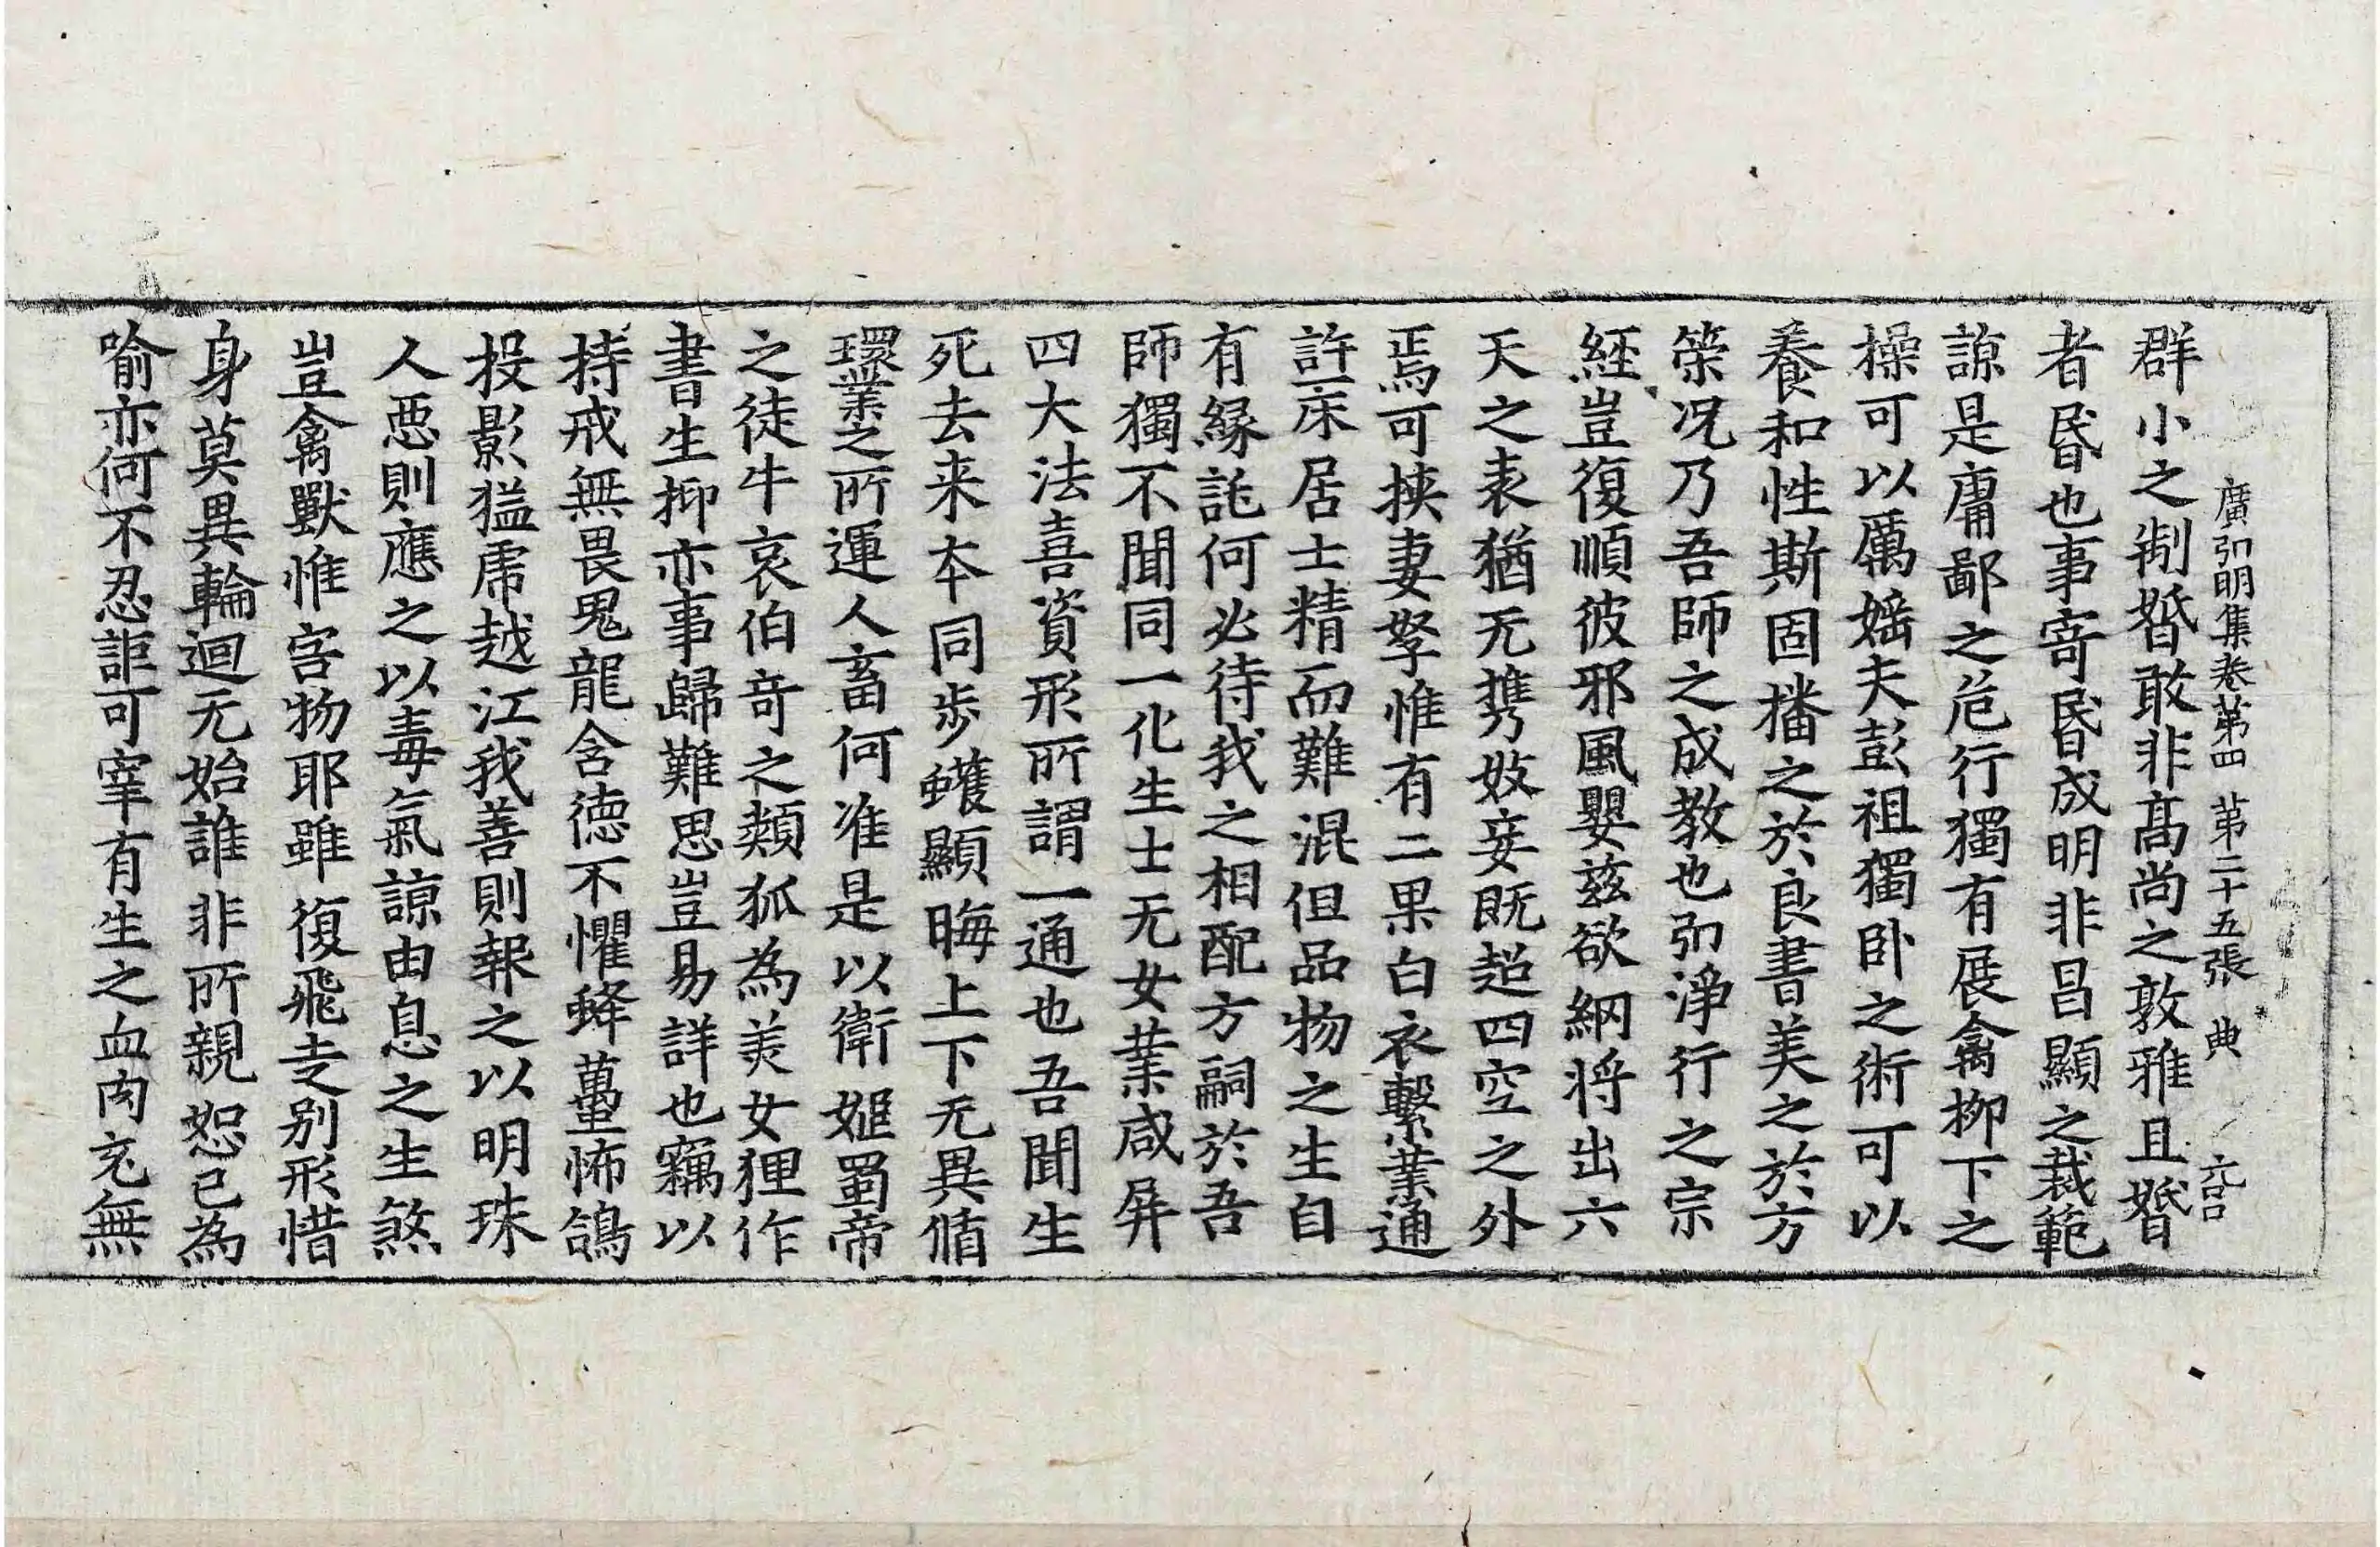 廣弘明集卷第四 第二十五張 典
群小之制婚敢非高尚之敦雅且婚
者昬也事寄昬成明非昌顯之裁範
諒是庸鄙之危行獨有展禽柳下之
操可以厲婬夫彭祖獨卧之術可以
養和性斯固播之於良書美之於方
策况乃吾師之成教也弘淨行之宗
經豈復順彼邪風嬰兹欲網將出六
天之表猶无携妓妾既超四空之外
焉可挾妻孥惟有二果白衣繫業通
許一床居士精而難混但品物之生自
有緣託何必待我之相配方嗣於吾
師獨不聞同一化生士无女業咸屏
四大法喜資形所謂一通也吾聞生
死去来本同步蠖顯晦上下无異循
環業之所運人畜何准是以衛姬蜀帝
之徒牛哀伯奇之類狐為美女狸作
書生抑亦事歸難思豈易詳也竊以
持戒無畏鬼龍含德不懼蜂蠆怖鴿
投影猛虎越江我善則報之以明珠
人惡則應之以毒氣諒由息之生煞
豈禽獸惟害物耶雖復飛走别形惜
身莫異輪迴无始誰非所親恕己為
喻亦何不忍詎可宰有生之血肉充無